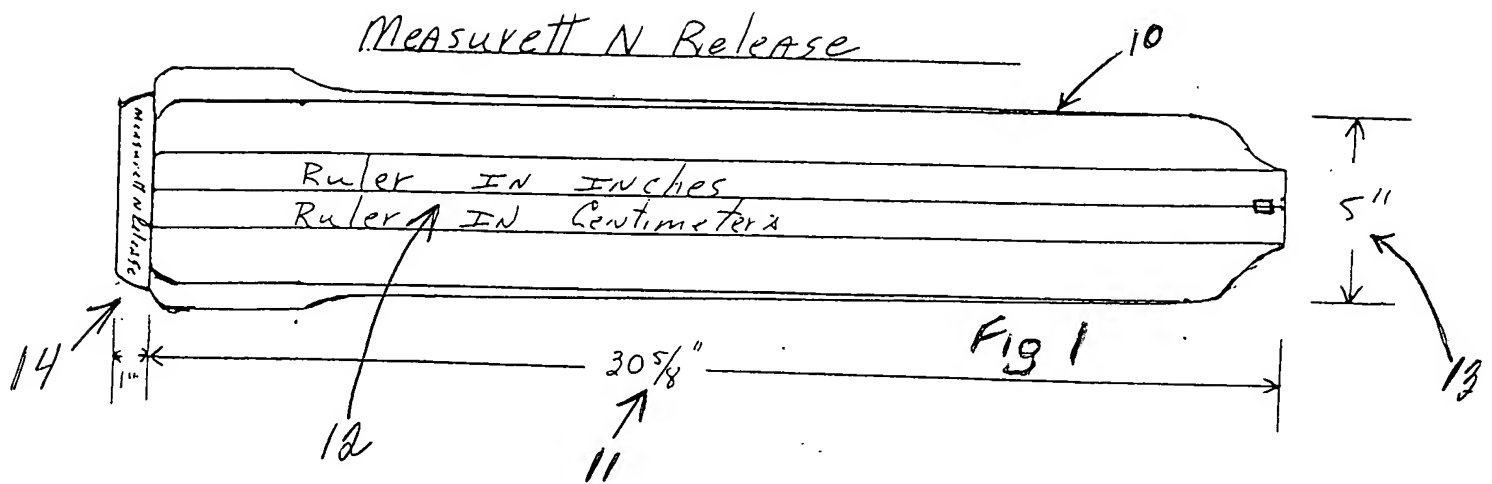 Measurett N Release
10
Measurett N Release
Ruler IN INches
Ruler IN Centimeters
5"
Fig 1
14
1"
30 5/8"
13
12
11